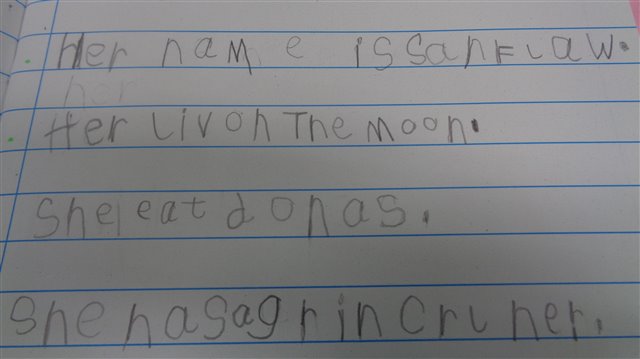 Her name issanFlaw.
her
Her Liv on The moon.
She eat donas.
She hasagrin criher.